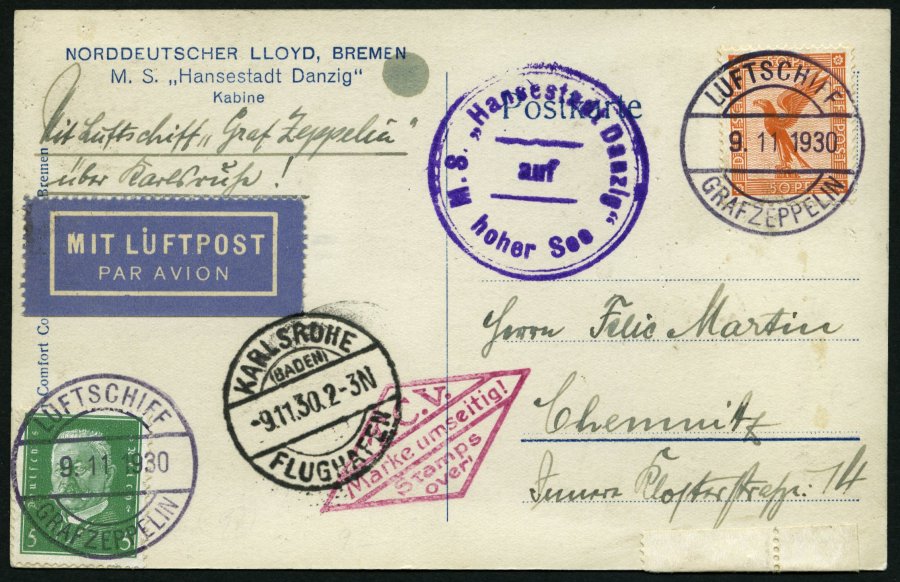 NORDDEUTSCHER LLOYD, BREMEN
M. S. „Hansestadt Danzig"
Kabine
Postkarte
Mit Luftschiff „Graf Zeppelin"
über Karlsruhe!
MIT LUFTPOST
PAR AVION
M. S. „Hansestadt Danzig"
auf
hoher See
LUFTSCHIFF
9. 11. 1930
GRAF ZEPPELIN
50 PF
Herrn Felix Martin
Chemnitz
Innere Klosterstraße 14
KARLSRUHE
(BADEN)
-9.11.30. 2-3N
FLUGHAFEN
C.V.
Marke umseitig!
Stamps
over!
Comfort Co
Bremen
LUFTSCHIFF
9. 11. 1930
GRAF ZEPPELIN
5